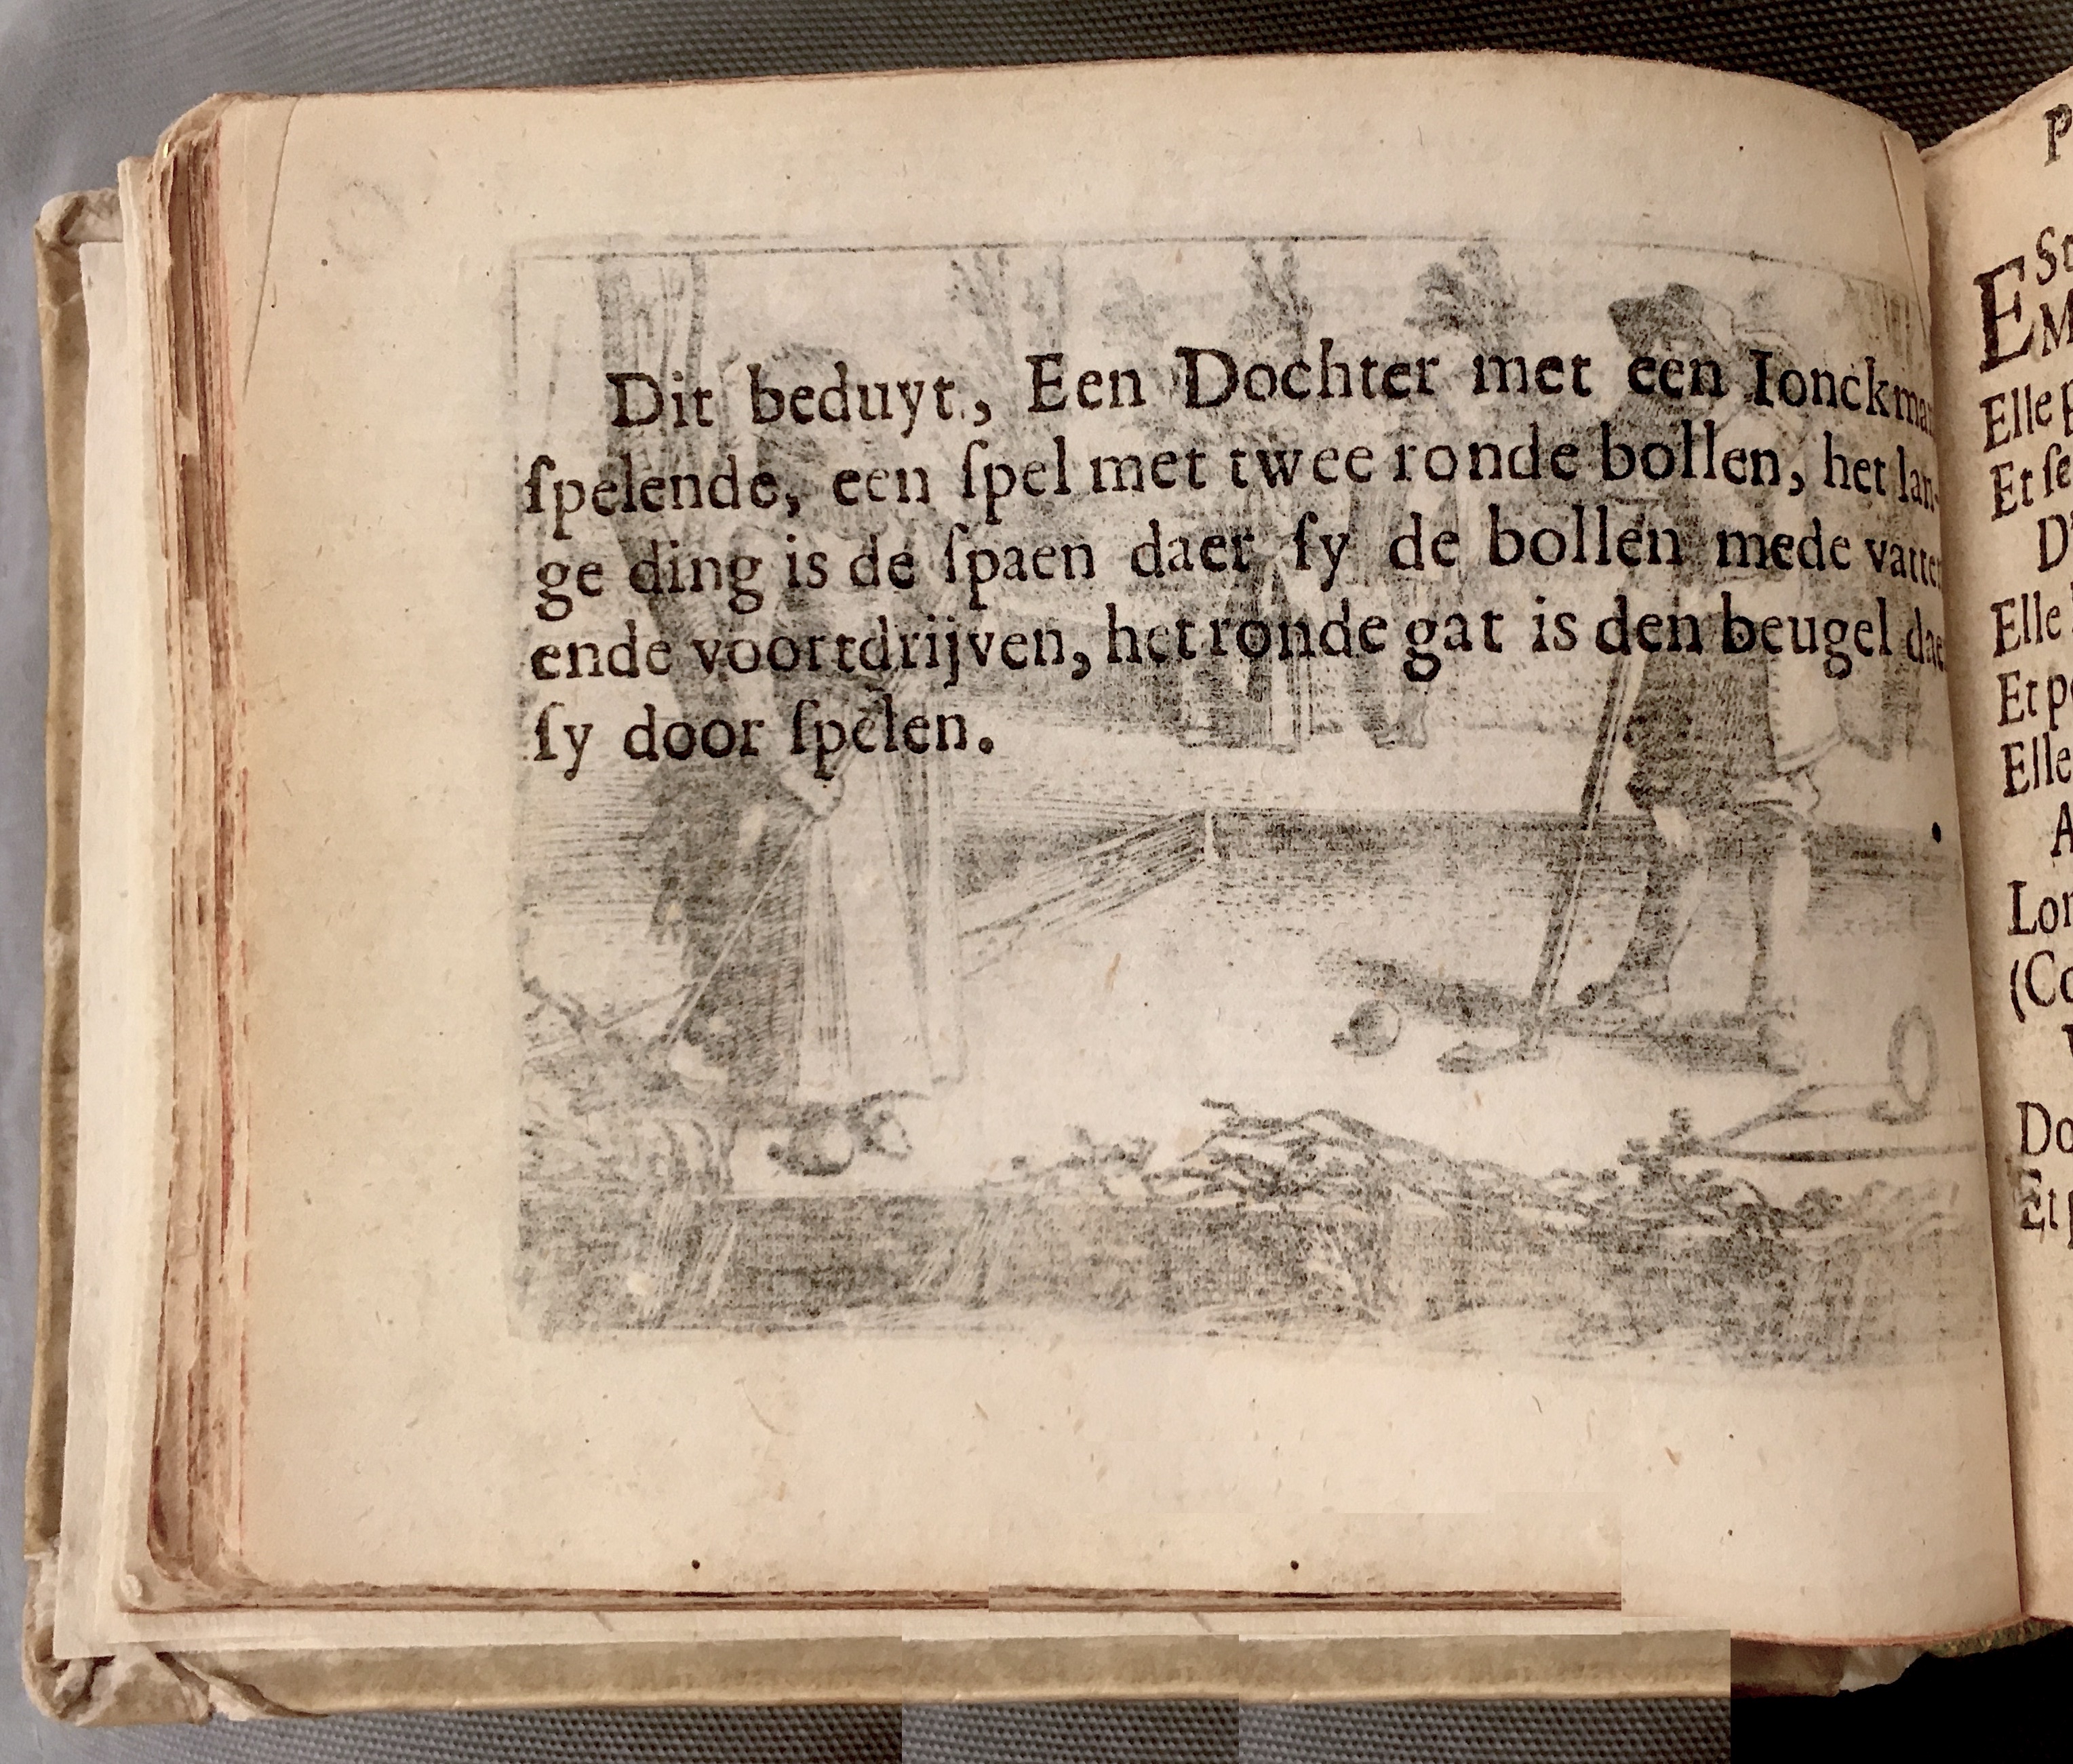 Dit beduyt, Een Dochter met een Ionckman
ſpelende, een ſpel met twee ronde bollen, het lan-
ge ding is de ſpaen daer ſy de bollen mede vatten
ende voortdrijven, het ronde gat is den beugel daer
ſy door ſpelen.
P
ESt
M
Elle
Et ſe
D'
Elle
Et po
Elle
A
Lon
(Co
Do
Et